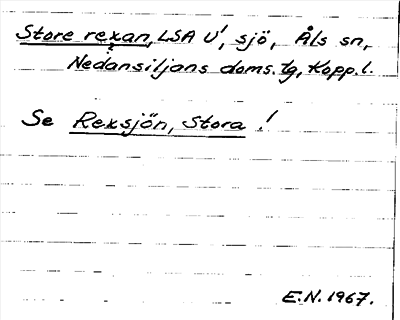 Store rexan, LSA U!, sjö, Åls sn,
Nedansiljans doms. tg, Kopp.l.
Se Rexsjön, Stora !
E.N. 1967.